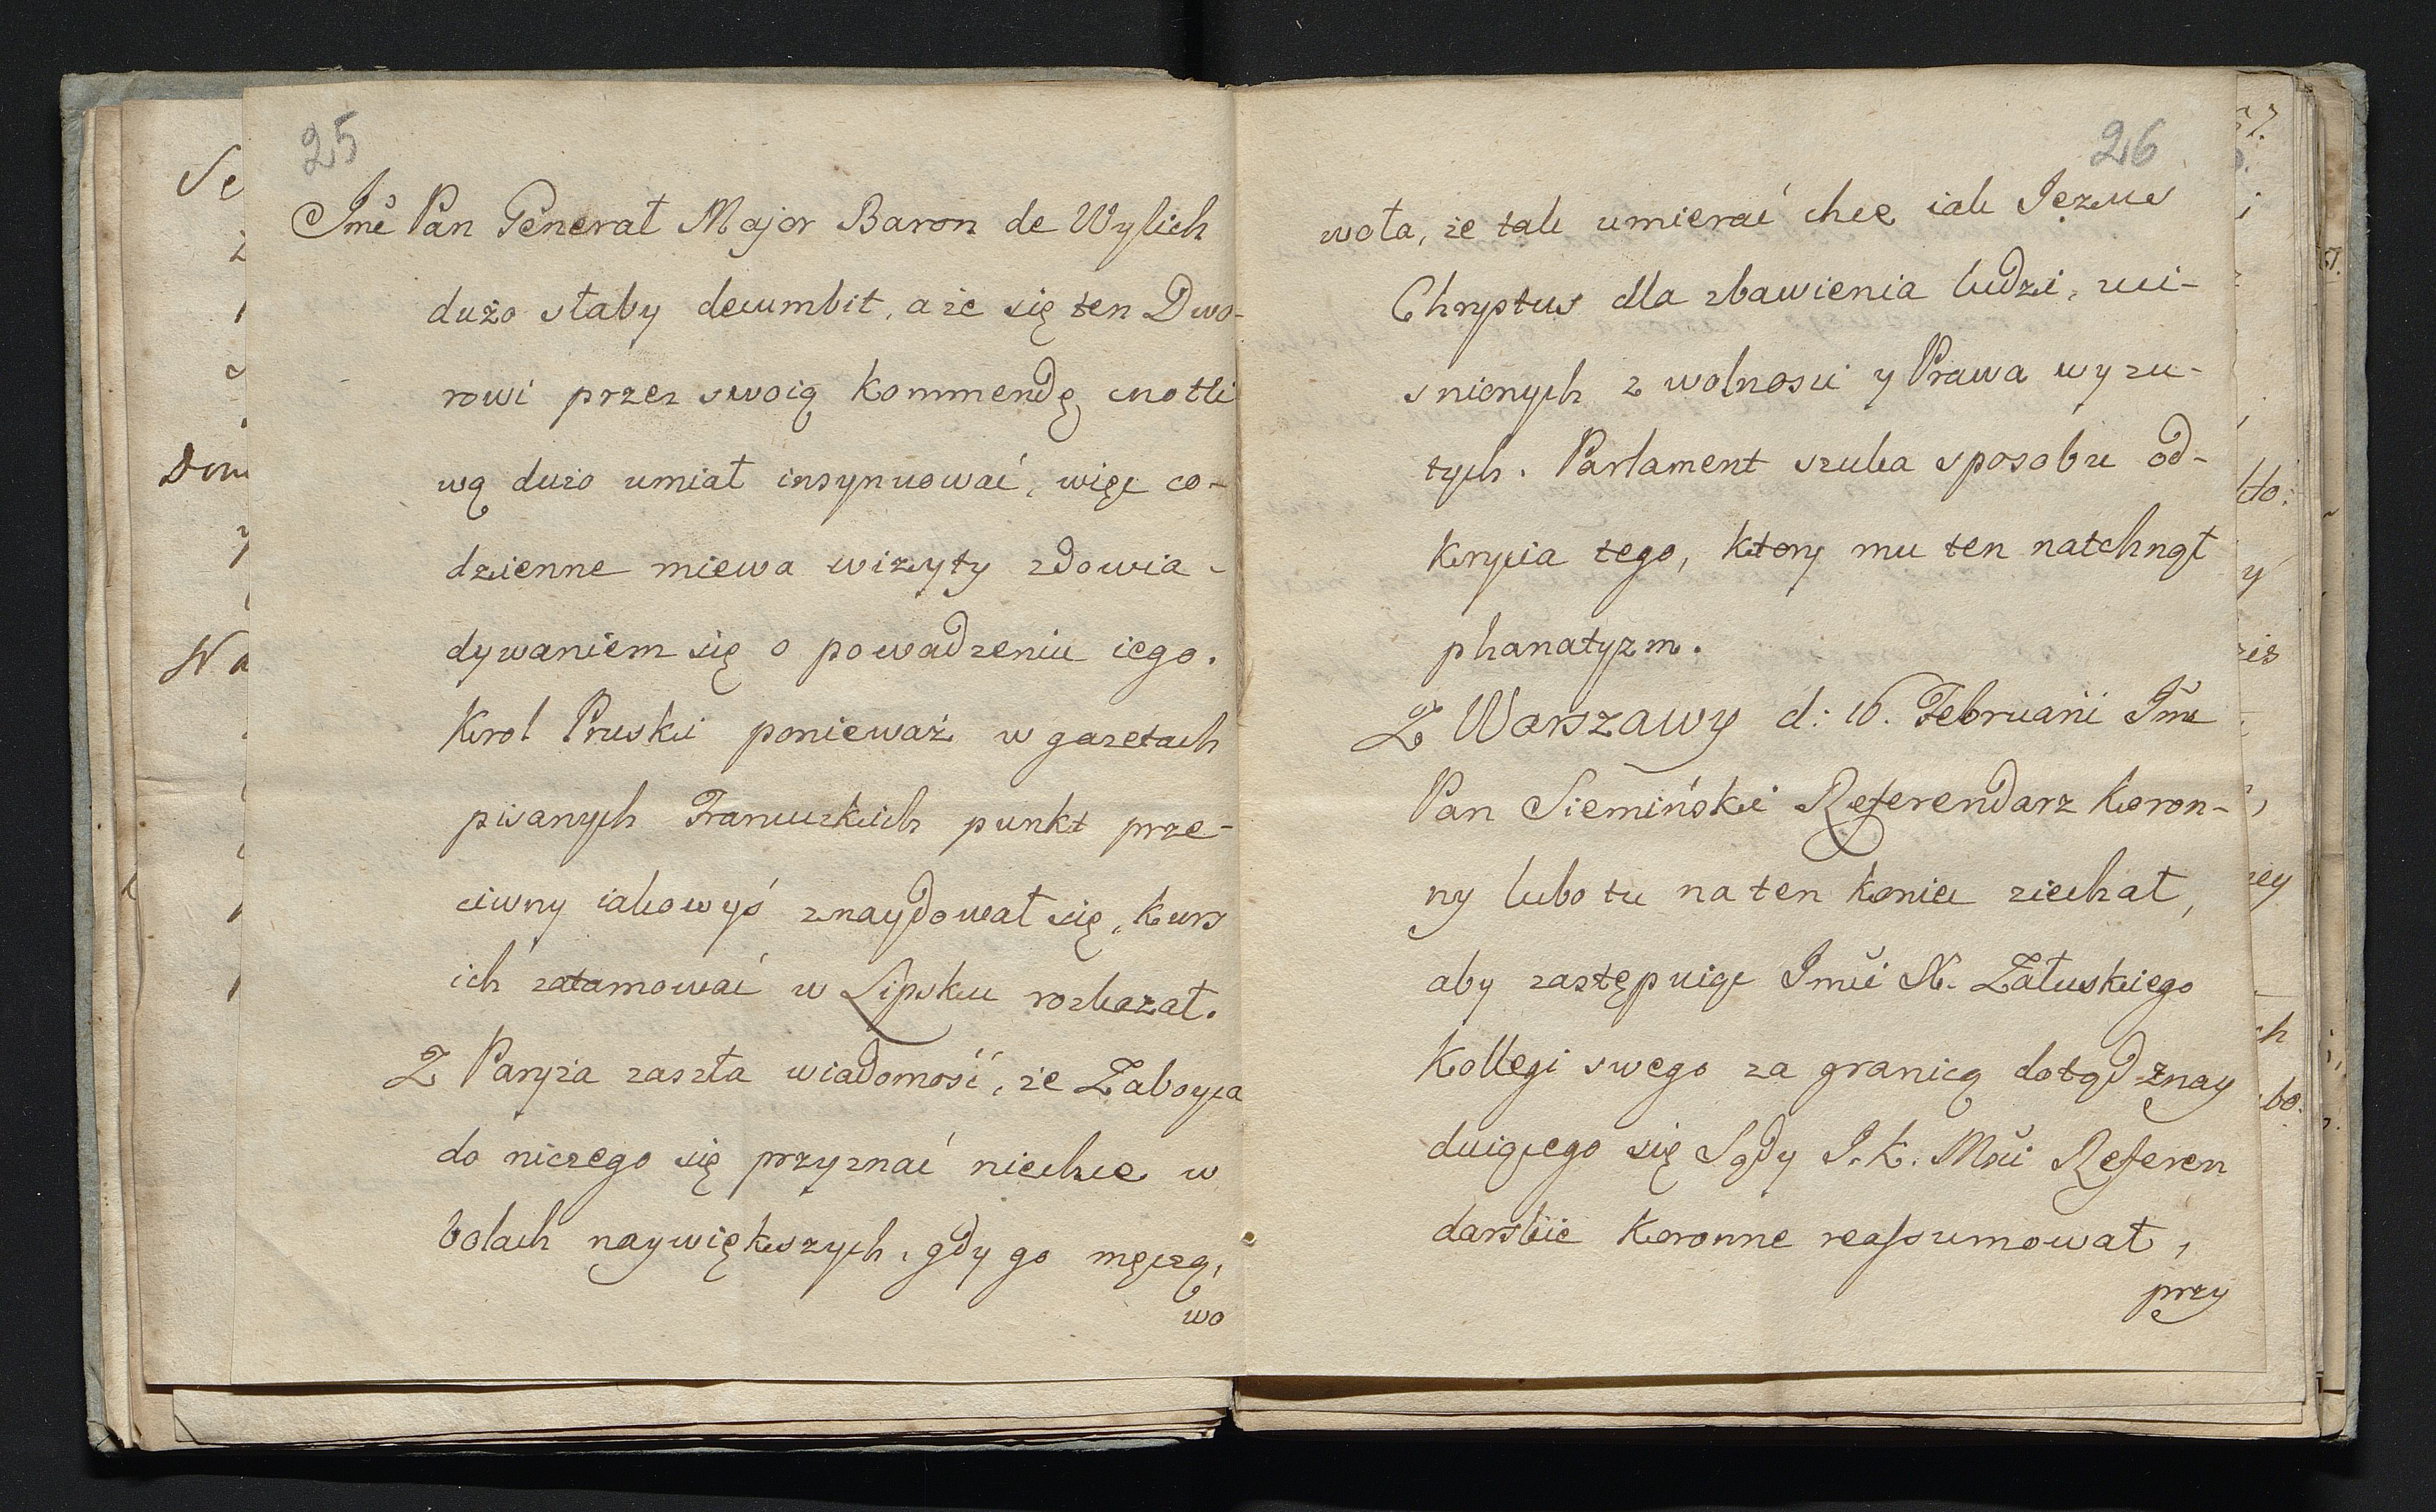 25
Jmć Pan Generał Major Baron de Wylich
dużo słaby decumbit, a że się ten Dwo-
rowi przez swoią Kommendę cnotli
wą dużo umiał insynuować, więc co-
dzienne miewa wizyty z dowia-
dywaniem się o powadzeniu iego.
Krol Pruski ponieważ w gazetach
pisanych Francuzkich punkt prze-
ciwny iakowyś znaydował się, kurs
ich zatamować w Lipsku rozkazał.
Z Paryża zaszła wiadomość, że Zaboyca
do niczego się przyznać niechce w
bolach naywiększych, gdy go męczą,
wo
26
woła, że tak umierać chce iak Jezus
Chrystus dla zbawienia ludzi, uci-
snionych z wolnosci y Prawa wyzu-
tych. Parlament szuka sposobu od-
krycia tego, ktory mu ten natchnął
phanatyzm.
Z Warszawy d: 16. Februarii Jmć
Pan Siemiński Referendarz Koron-
ny lubo tu na ten koniec ziechał,
aby zastępuiąc Jmci X. Załuskiego
Kollegi swego za granicą dotąd znay
duiącego się Sądy J. K. Mści Referen
darskie Koronne reassumował,
przy